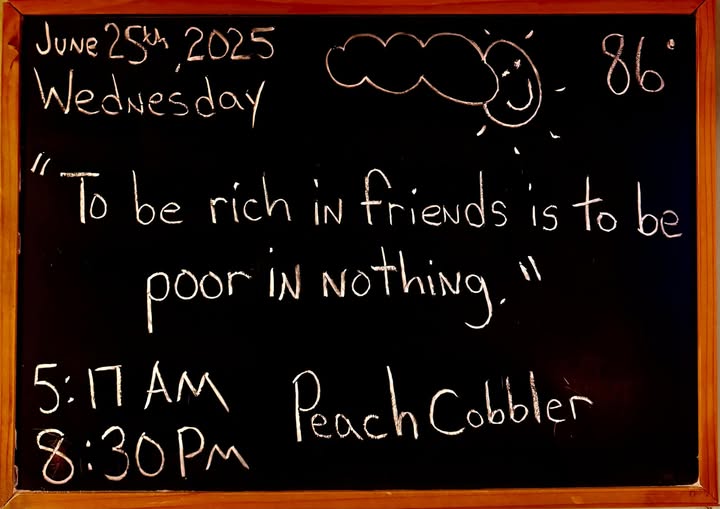 June 25th, 2025
86°
Wednesday
"To be rich in friends is to be
poor in nothing."
5:17 AM
Peach Cobbler
8:30 PM